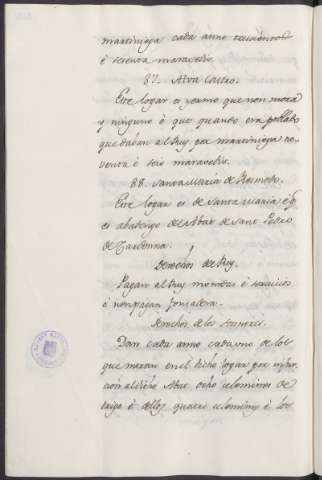 martiniega cada anno trecientos
é sesenta maravedis.
87. Alva Castro.
Este logar es yermo que non mora
y ninguno é que quando era poblado
que daban al Rey por martiniega no-
venta é seis maravedis.
88. Santa Maria de
Este logar es de Santa Maria é
es abadengo del Abat de Sant Pedro
de Cardenna.
Derechos del Rey.
Pagan al Rey monedas é servicios
é non pagan fonsadera.
Derechos de los Sennores.
Dan cada anno cada uno de los
que moran en el dicho logar por infur-
cion al dicho Abat ocho celemines de
trigo é dellos quatro celemines é los